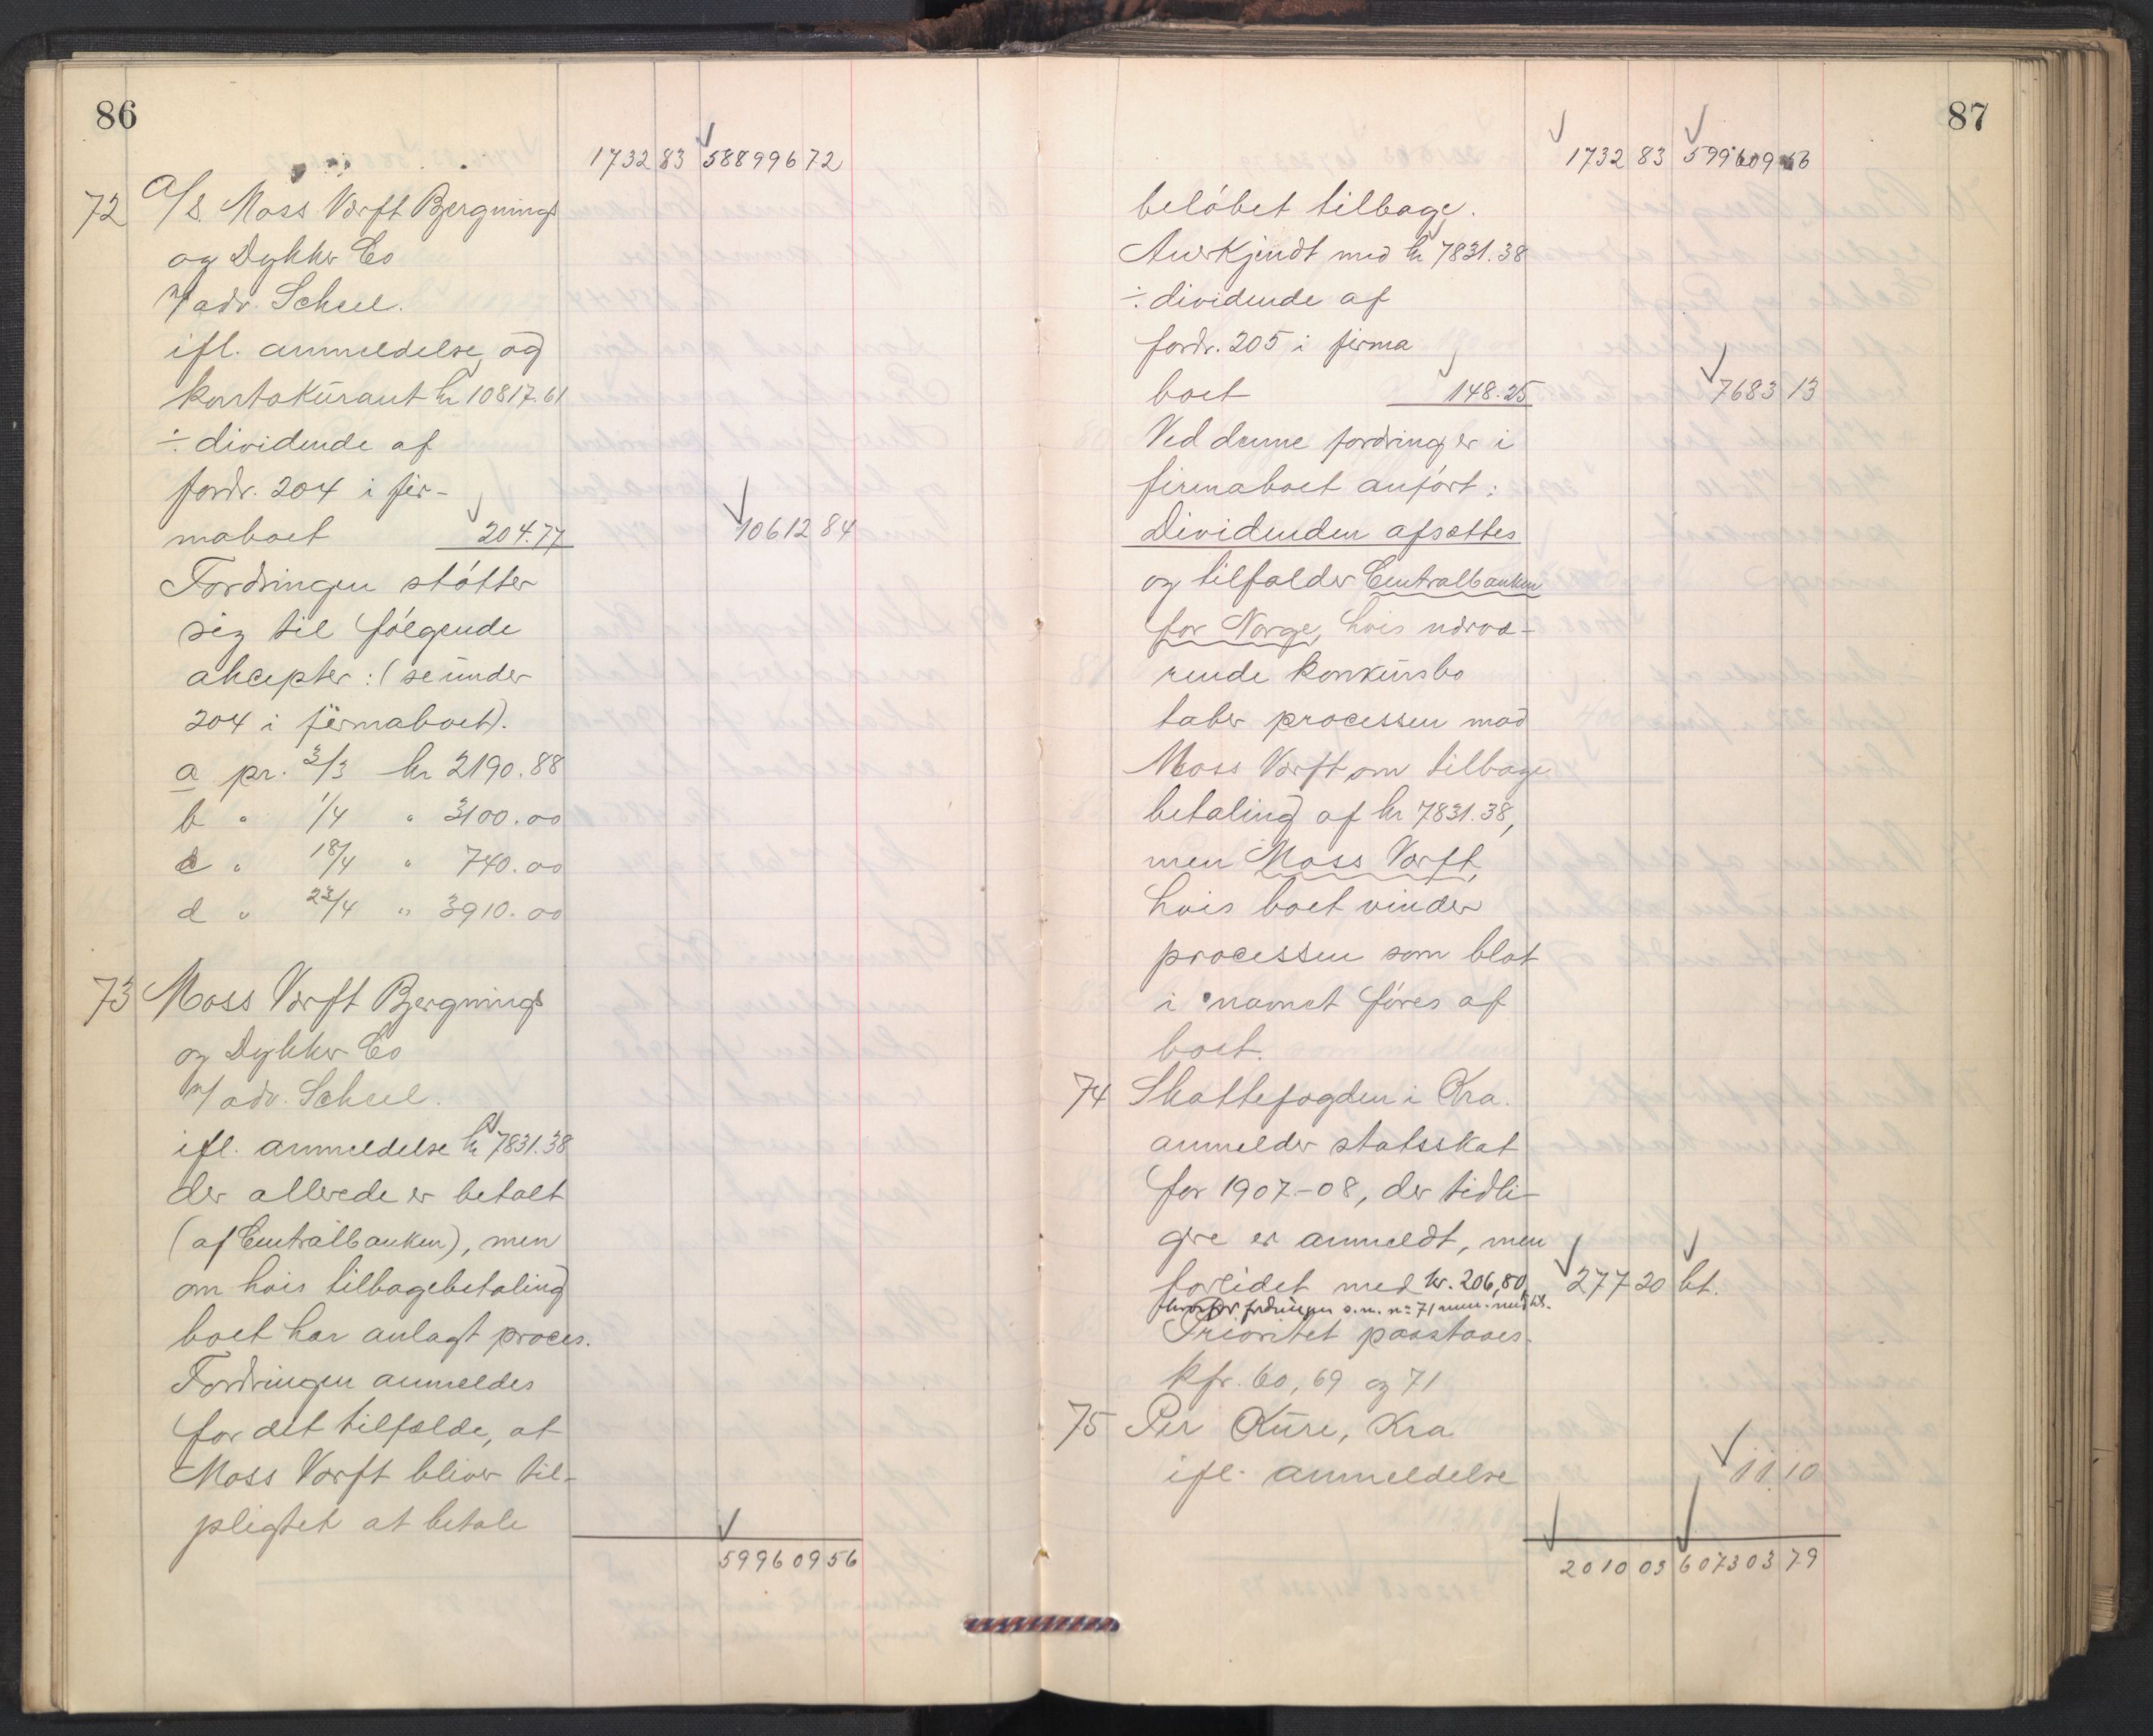 86
1732 83 588996 72
72 A/S. Moss Værft Bjergnings
og Dykker Co
v/ adv. Scheel.
ifl. anmeldelse og
kontokurant kr 10817.61
÷ dividende af
fordr. 204 i fir-
maboet 204.77 10612 84
Fordringen støtter
sig til følgende
akcepter: (se under
204 i firmaboet).
a pr. 3/3 kr 2190.88
b " 1/4 " 3100.00
c " 18/4 " 740.00
d " 23/4 " 3910.00
73 Moss Værft Bjergnings
og Dykker Co
v/ adv. Scheel.
ifl. anmeldelse kr 7831.38
der allerede er betalt
(af Centralbanken), men
om hvis tilbagebetaling
boet har anlagt proces.
Fordringen anmeldes
for det tilfælde, at
Moss Værft bliver til-
pligtet at betale
599609 56
87
1732 83 599609 56
beløbet tilbage.
Anerkjendt med kr 7831.38
÷ dividende af
fordr. 205 i firma
boet 148.25 7683 13
Ved denne fordring er i
firmaboet anført:
Dividenden afsættes
og tilfalder Centralbanken
for Norge, hvis nærvæ-
rende konkursbo
taber processen mod
Moss Værft om tilbage
betaling af kr 7831.38,
men Moss Værft,
hvis boet vinder
processen som blot
i navnet føres af
boet.
74 Skattefogden i Kra.
anmelder statsskat
for 1907-08, der tidli-
gere er anmeldt, men
foreidet med kr. 206,80, 277 20 bt.
hvorfor fordringen s.m. no 71 anm. med kr.
Prioritet paastaaes.
kfr. 60, 69 og 71
75 Per Kure, Kra
ifl. anmeldelse 11 10
2010 03 607303 79